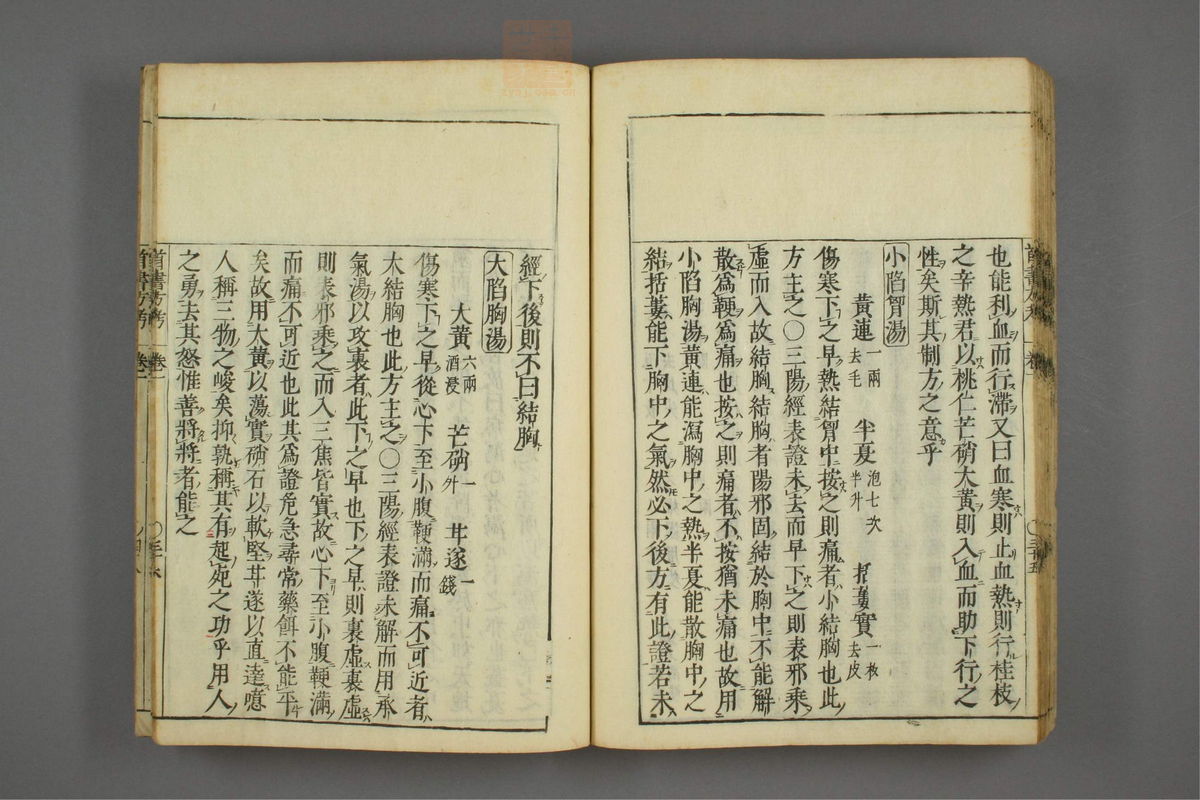 也能利血而行滯又曰血寒則止血熱則行桂枝
之辛熱君以桃仁芒硝大黃則入血而助下行之
性矣斯其制方之意乎
小陷胷湯
黃連一兩去毛 半夏泡七次半升 括蔞實一枚去皮
傷寒下之早熱結胷中按之則痛者小結胸也此
方主之○三陽經表證未去而早下之則表邪乘
虛而入故結胸結胸者陽邪固結於胸中不能解
散爲鞕爲痛也按之則痛者不按猶未痛也故用
小陷胸湯黃連能瀉胸中之熱半夏能散胸中之
結括蔞能下胸中之氣然必下後方有此證若未
經下後則不曰結胸
大陷胸湯
大黃六兩酒浸 芒硝一升 甘遂一錢
傷寒下之早從心下至小腹鞕滿而痛不可近者
大結胸也此方主之○三陽經表證未解而用承
氣湯以攻裏者此下之早也下之早則裏虛裏虛
則表邪乘之而入三焦皆實故心下至小腹鞕滿
而痛不可近也此其爲證危急尋常藥餌不能平
矣故用大黃以蕩實硝石以軟堅甘遂以直達噫
人稱三物之峻矣抑孰稱其有起宛之功乎用人
之勇去其怒惟善將將者能之
首書方考 卷一